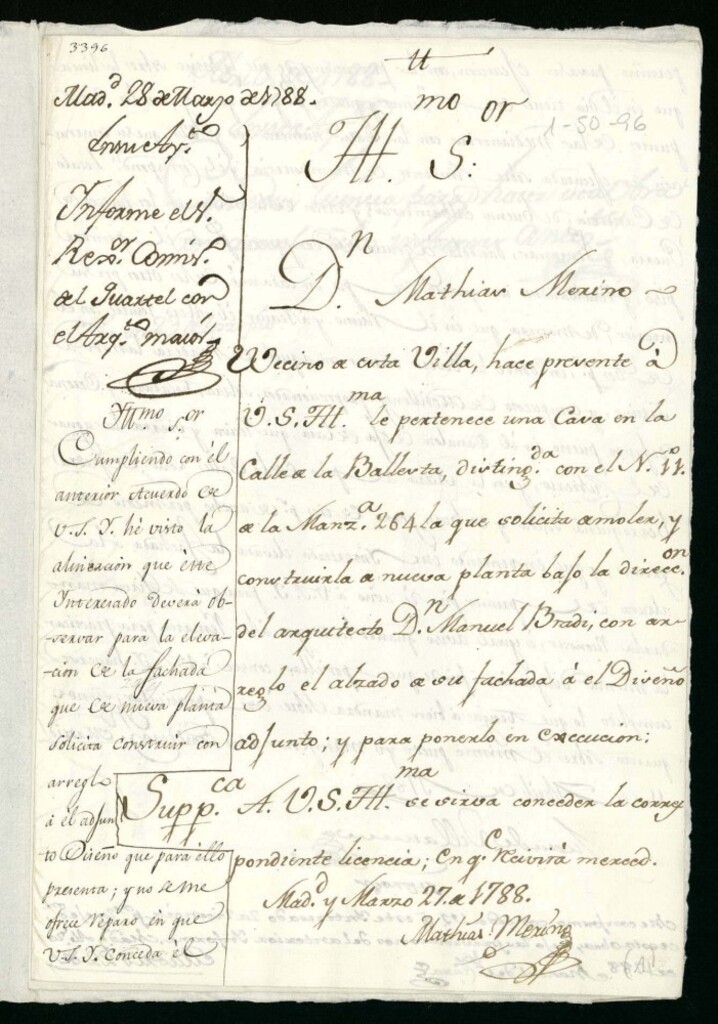 3396
Mad.d 28 de Marzo de 1788.
En su Ay.to
Informe el S.r
Rex.or Comis.o
del Quartel con
el Arq.to maior
Ill.mo S.or
Cumpliendo con el
anterior Acuerdo de
V.S.Y. hé visto la
alineación que este
Interesado deverá ob-
servar para la eleva-
-ción de la fachada
que de nueva planta
solicita construir con
arreglo
á el adjun
to Diseño que para ello
presenta; y no se me
ofrece reparo en que
V.S.Y. conceda él
tt
Ill.mo S.or
1-50-96
D.n Mathias Merino
Vecino de esta Villa, hace presente á
V.S.Ill.ma le pertenece una Casa en la
Calle de la Ballesta, disting.da con el N.o 11
de la Manz.a 264 la que solicita demoler, y
construirla de nueva planta bajo la direcc.on
del arquitecto D.n Manuel Bradi, con ar-
reglo el alzado de su fachada á el Diseño
adjunto; y para ponerlo en execución;
Supp.ca A. V.S.Ill.ma se sirva conceder la corres
pondiente licencia; En q.e recivirá merced.
Mad.d y Marzo 27 de 1788.
Mathias Merino